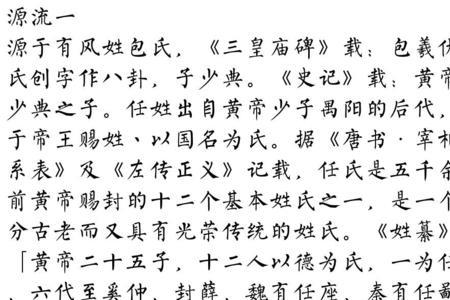 源流一
源于有风姓包氏，《三皇庙碑》载：包羲伏
氏创字作八卦，子少典。《史记》载：黄帝
少典之子。任姓出自黄帝少子禺阳的后代，
于帝王赐姓、以国名为氏。据《唐书·宰相
系表》及《左传正义》记载，任氏是五千余
前黄帝赐封的十二个基本姓氏之一，是一个
分古老而又具有光荣传统的姓氏。《姓纂》
「黄帝二十五子，十二人以德为氏，一为任
六代至奚仲，封薛，魏有任座，秦有任鄙